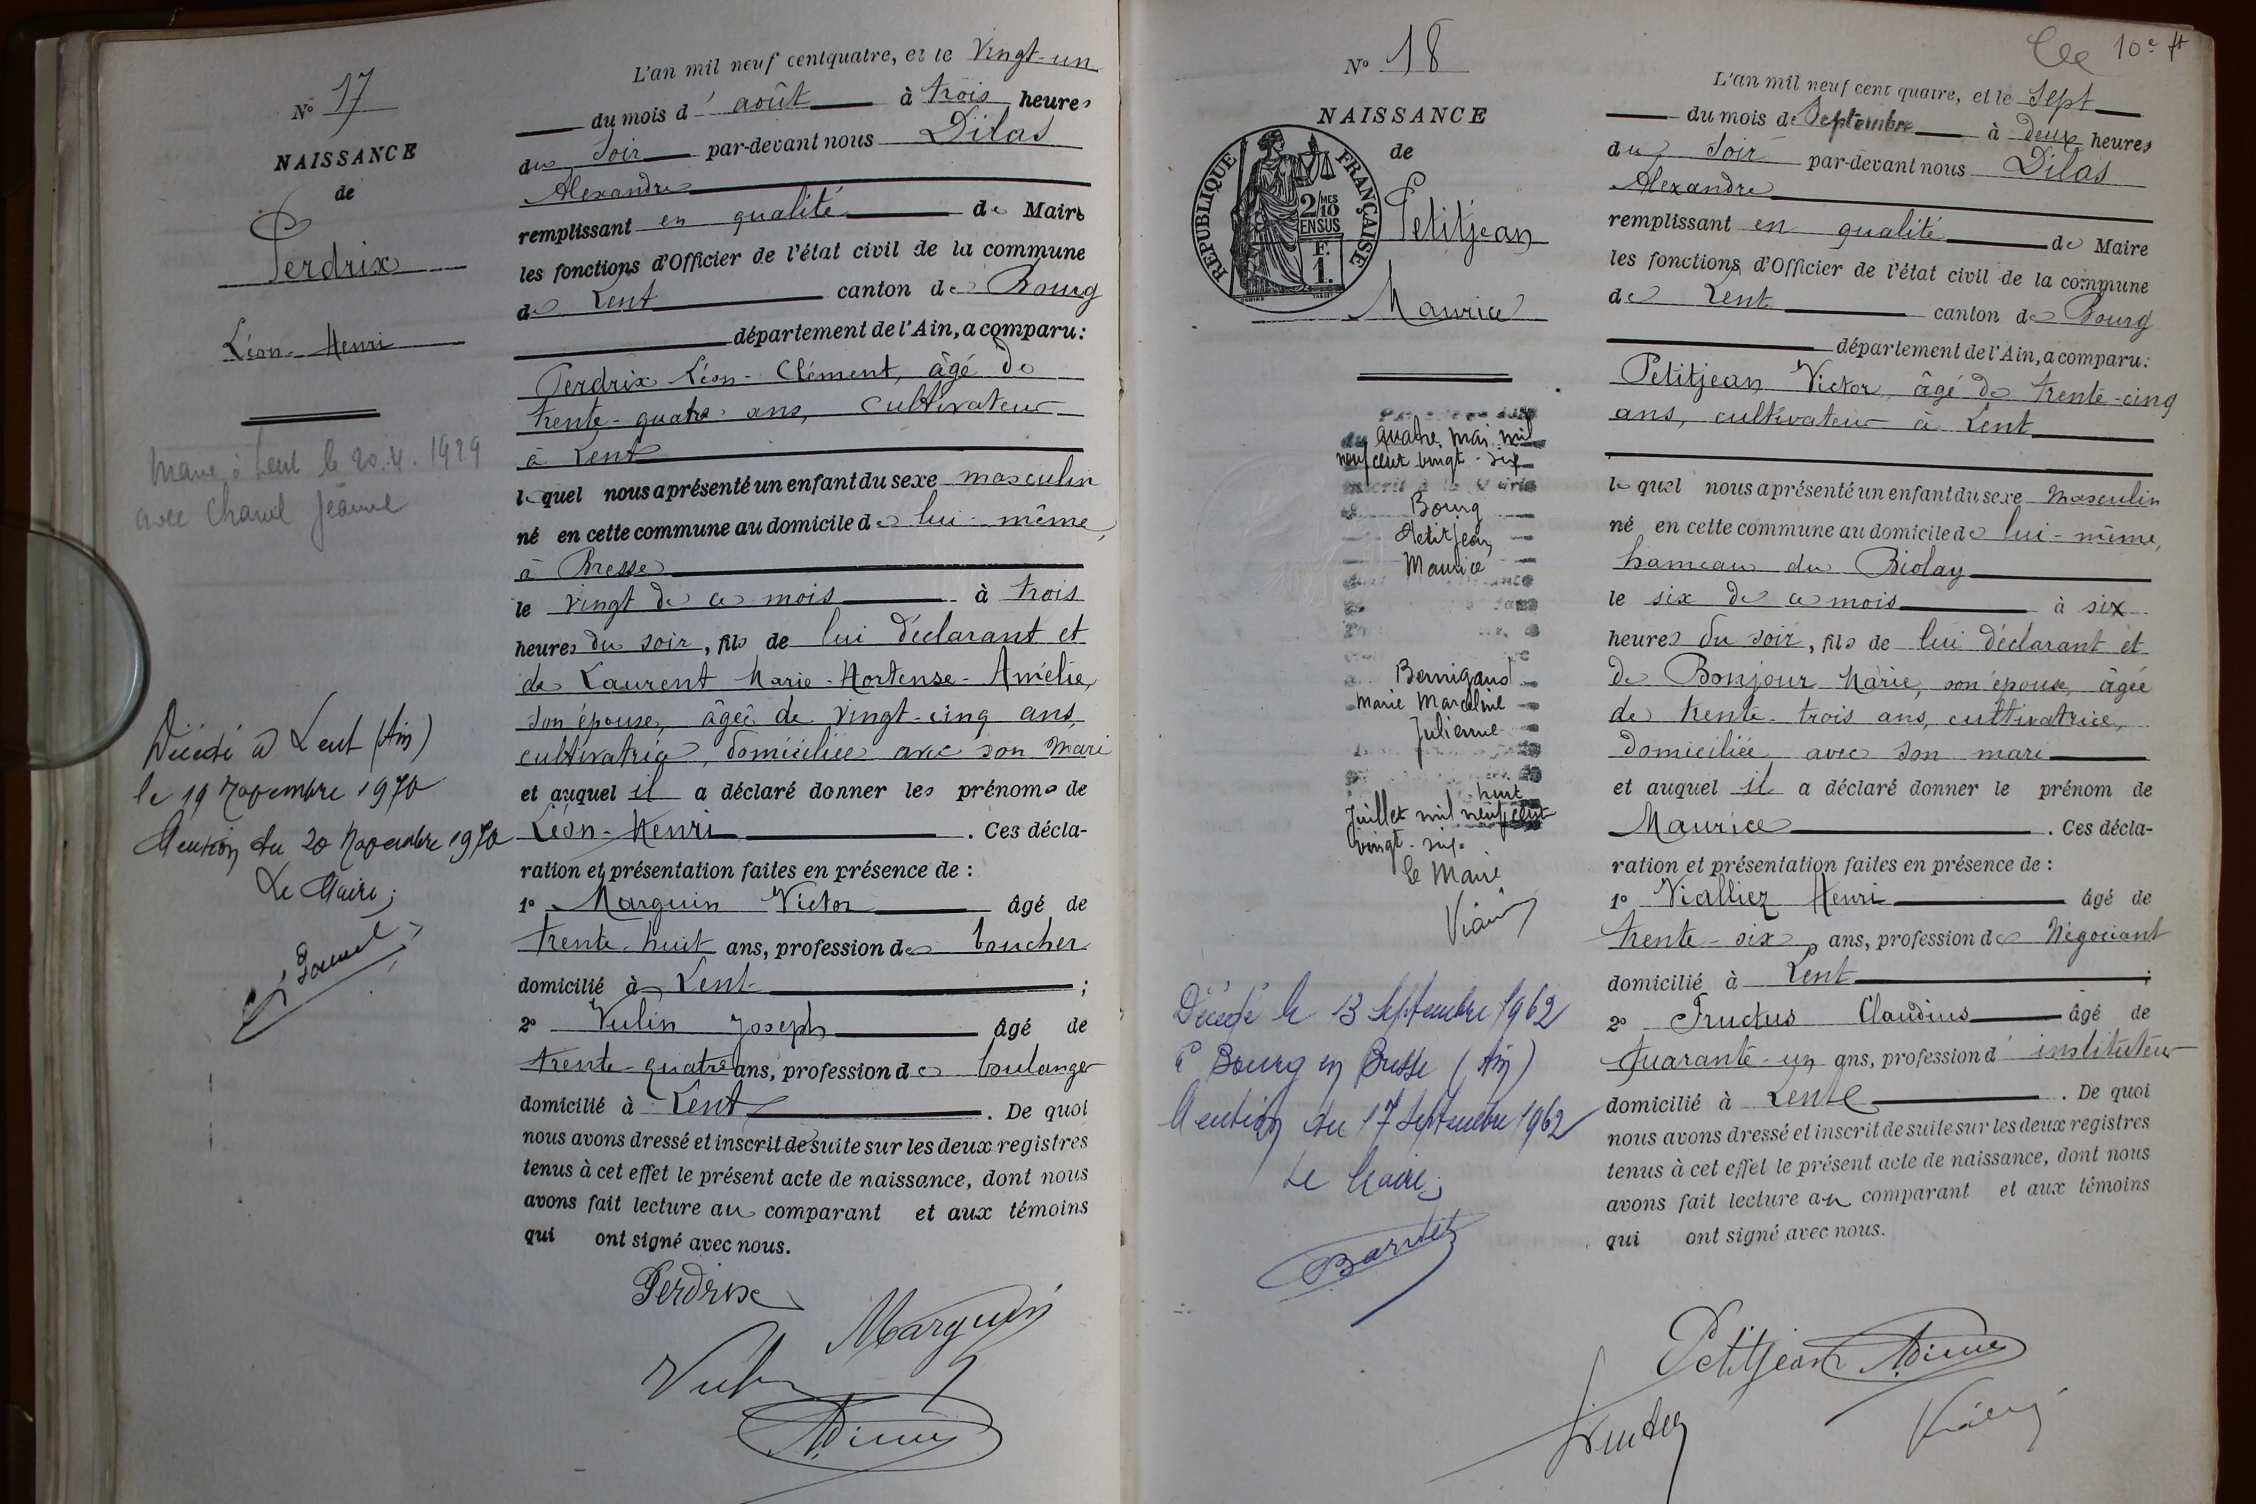 N° 17
NAISSANCE
de
Perdrix
Léon-Henri
Marié à Lent le 20.4.1929
avec Charvel Jeanne
Décédé à Lent (Ain)
le 19 Novembre 1970
Mention du 20 Novembre 1970
Le Maire,
L'an mil neuf cent quatre, et le vingt-un
du mois d'août à trois heures
du soir par-devant nous Dilas
Alexandre
remplissant en qualité de Maire
les fonctions d'Officier de l'état civil de la commune
de Lent canton de Bourg
département de l'Ain, a comparu:
Perdrix Léon-Clément, âgé de
trente-quatre ans, cultivateur
à Lent
lequel nous a présenté un enfant du sexe masculin
né en cette commune au domicile de lui-même,
à Bresse
le vingt de ce mois à trois
heures du soir, fils de lui déclarant et
de Laurent Marie-Hortense-Amélie,
son épouse, âgée de vingt-cinq ans,
cultivatrice, domiciliée avec son mari
et auquel il a déclaré donner les prénoms de
Léon-Henri. Ces décla-
ration et présentation faites en présence de :
1° Marguin Victor âgé de
trente-huit ans, profession de boucher
domicilié à Lent ;
2° Vulin Joseph âgé de
trente-quatre ans, profession de boulanger
domicilié à Lent. De quoi
nous avons dressé et inscrit de suite sur les deux registres
tenus à cet effet le présent acte de naissance, dont nous
avons fait lecture au comparant et aux témoins
qui ont signé avec nous.
Perdrix
Marguin
Vulin
N° 18
NAISSANCE
de
RÉPUBLIQUE FRANÇAISE
2/10 MES
EN SUS
F.
1.
Petitjean
Maurice
quatre mai mil
neuf cent vingt-six
Bourg
Petitjean
Maurice
Bernigaud
Marie Marceline
Julienne
huit
Juillet mil neuf cent
vingt-six
le Maire
Décédé le 13 Septembre 1962
à Bourg en Bresse (Ain)
Mention du 17 Septembre 1962
Le Maire,
10e ft
L'an mil neuf cent quatre, et le sept
du mois de Septembre à deux heures
du soir par-devant nous Dilas
Alexandre
remplissant en qualité de Maire
les fonctions d'Officier de l'état civil de la commune
de Lent canton de Bourg
département de l'Ain, a comparu:
Petitjean Victor, âgé de trente-cinq
ans, cultivateur à Lent
lequel nous a présenté un enfant du sexe masculin
né en cette commune au domicile de lui-même,
hameau du Biolay
le six de ce mois à six
heures du soir, fils de lui déclarant et
de Bonjour Marie, son épouse, âgée
de trente-trois ans, cultivatrice,
domiciliée avec son mari
et auquel il a déclaré donner le prénom de
Maurice. Ces décla-
ration et présentation faites en présence de :
1° Vialliez Henri âgé de
trente-six ans, profession de Négociant
domicilié à Lent ;
2° Fructus Claudius âgé de
quarante-un ans, profession d'instituteur
domicilié à Lent. De quoi
nous avons dressé et inscrit de suite sur les deux registres
tenus à cet effet le présent acte de naissance, dont nous
avons fait lecture au comparant et aux témoins
qui ont signé avec nous.
Petitjean